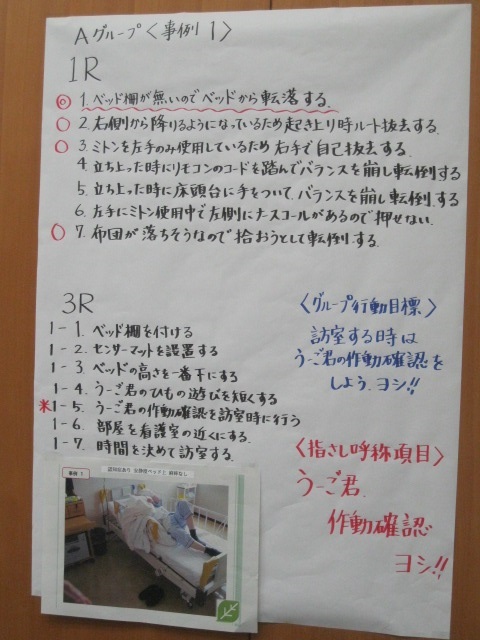 Aグループ〈事例1〉
1R
1. ベッド柵が無いのでベッドから転落する。
2. 右側から降りるようになっているため起き上り時ルート抜去する。
3. ミトンを左手のみ使用しているため右手で自己抜去する。
4. 立ち上った時にリモコンのコードを踏んでバランスを崩し転倒する
5. 立ち上った時に床頭台に手をついて、バランスを崩し転倒する
6. 左手にミトン使用中で左側にナースコールがあるので押せない。
7. 布団が落ちそうなので拾おうとして転倒する。
3R
1-1. ベッド柵を付ける
1-2. センサーマットを設置する
1-3 ベッドの高さを一番下にする
1-4. うーご君のひもの遊びを短くする
※1-5. うーご君の作動確認を訪室時に行う
1-6. 部屋を看護室の近くにする。
1-7. 時間を決めて訪室する。
〈グループ行動目標〉
訪室する時は
うーご君の作動確認を
しよう、ヨシ!!
〈指さし呼称項目〉
うーご君
作動確認
ヨシ!!
事例 1